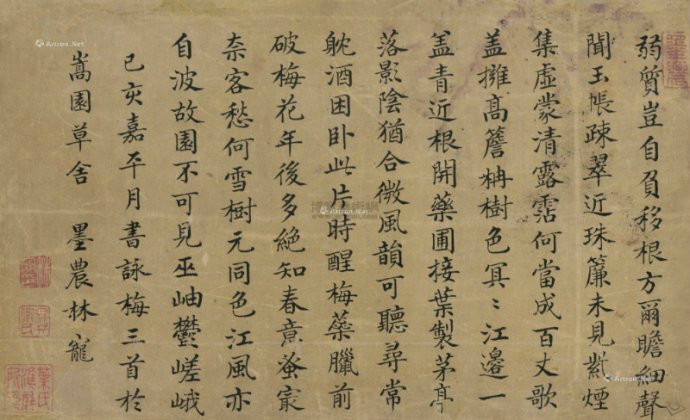 弱質豈自負移根方爾瞻細聲
聞玉帳疎翠近珠簾未見紫煙
集虛蒙清露霑何當成百丈歌
蓋擁高簷柟樹色冥〻江邊一
盖青近根開藥圃接葉製茅亭
落影陰猶合微風韻可聽尋常
躭酒困卧此片時醒梅蘂臘前
破梅花年後多絕知春意蚤㝡
柰客愁何雪樹元同色江風亦
自波故園不可見巫岫鬱嵯峨
己亥嘉平月書詠梅三首於
嵩園草舍 墨農林寵
Artron.Net
Artron.Net
Artron.Net
Artron.Net
Artron.Net